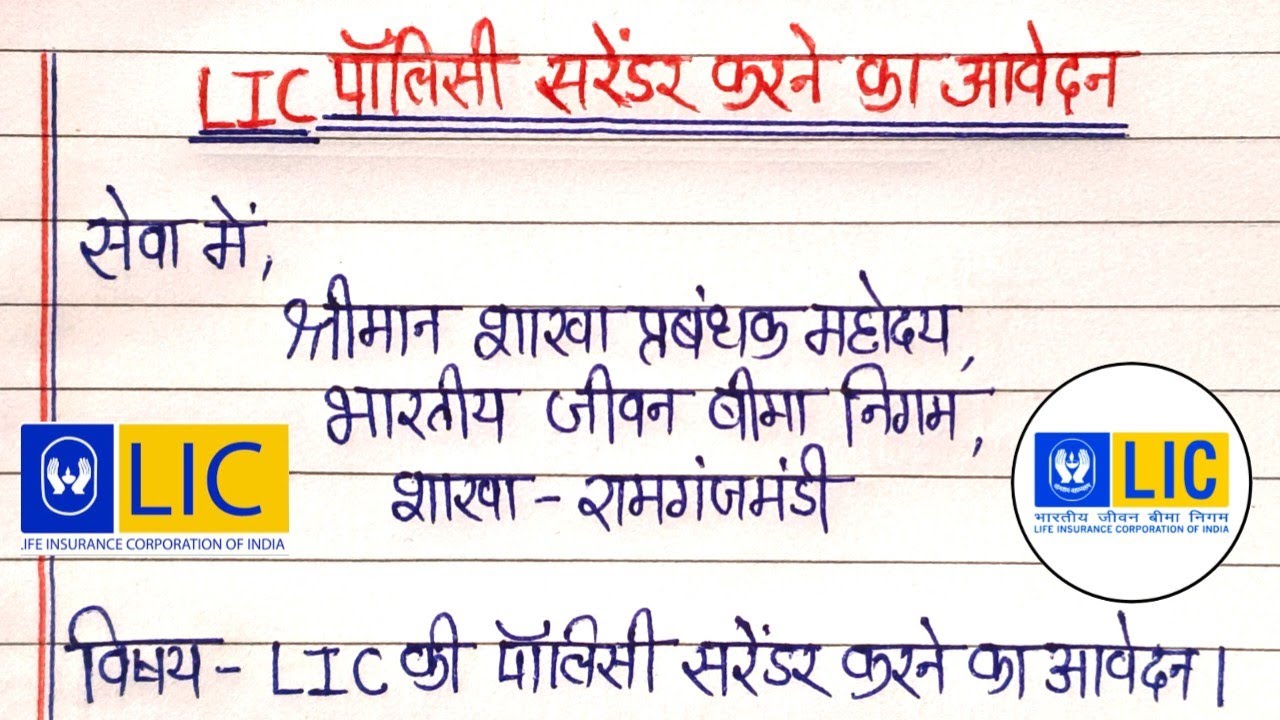 LIC पॉलिसी सरेंडर करने का आवेदन
सेवा में,
श्रीमान शाखा प्रबंधक महोदय,
भारतीय जीवन बीमा निगम,
शाखा - रामगंजमंडी
LIC
LIFE INSURANCE CORPORATION OF INDIA
LIC
भारतीय जीवन बीमा निगम
LIFE INSURANCE CORPORATION OF INDIA
विषय - LIC की पॉलिसी सरेंडर करने का आवेदन।